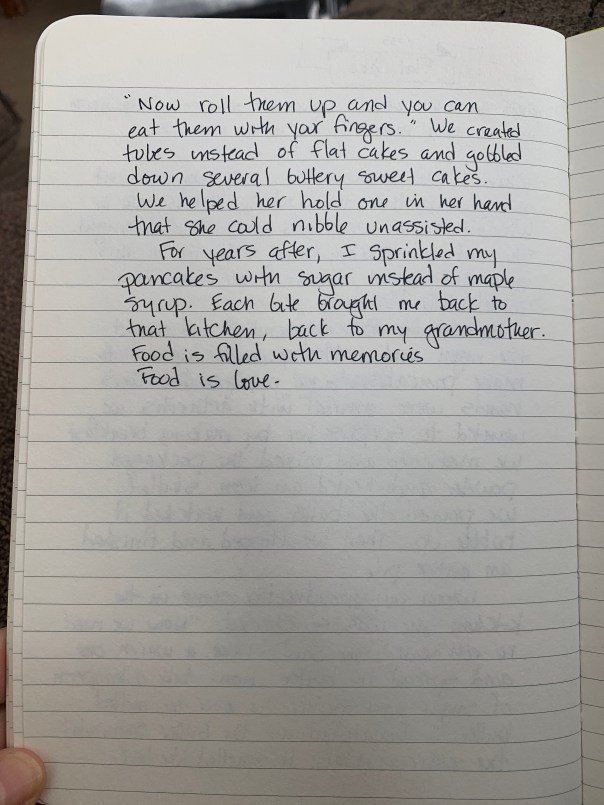 "Now roll them up and you can
eat them with your fingers." We created
tubes instead of flat cakes and gobbled
down several buttery sweet cakes.
We helped her hold one in her hand
that she could nibble unassisted.
For years after, I sprinkled my
pancakes with sugar instead of maple
syrup. Each bite brought me back to
that kitchen, back to my grandmother.
Food is filled with memories
Food is love.